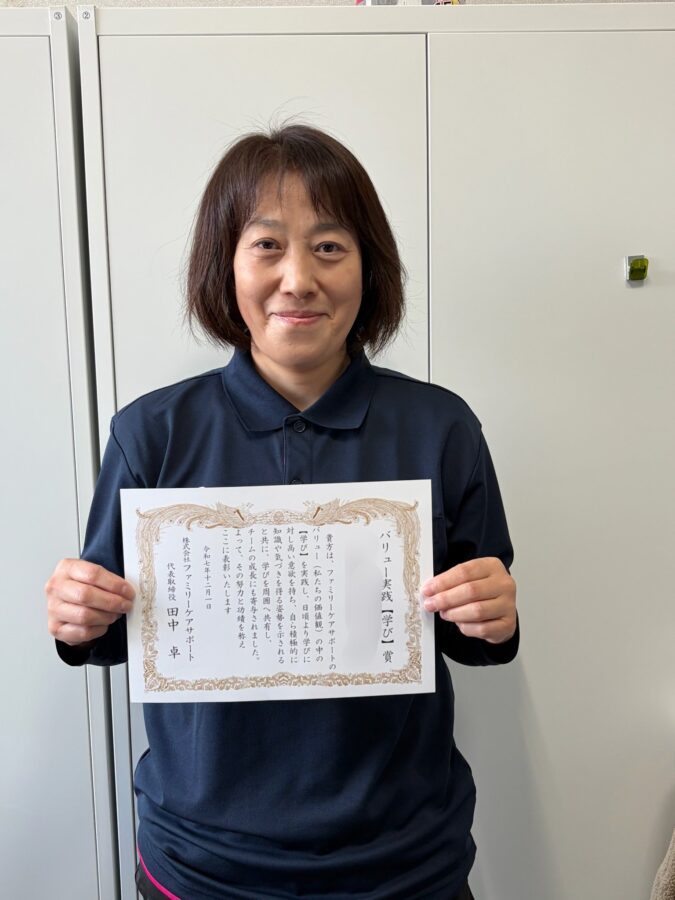 ③
②
バリュー実践【学び】賞
貴方は、ファミリーケアサポートの
バリュー（私たちの価値観）の中の
【学び】を実践し、日頃より学びに
対し高い意欲を持ち、自ら積極的に
知識や気づきを得る姿勢を示される
と共に、学びを周囲へ共有し、
チームの成長にも寄与されました。
よって、その努力と功績を称え
ここに表彰いたします
令和七年十二月一日
株式会社ファミリーケアサポート
代表取締役 田中 卓